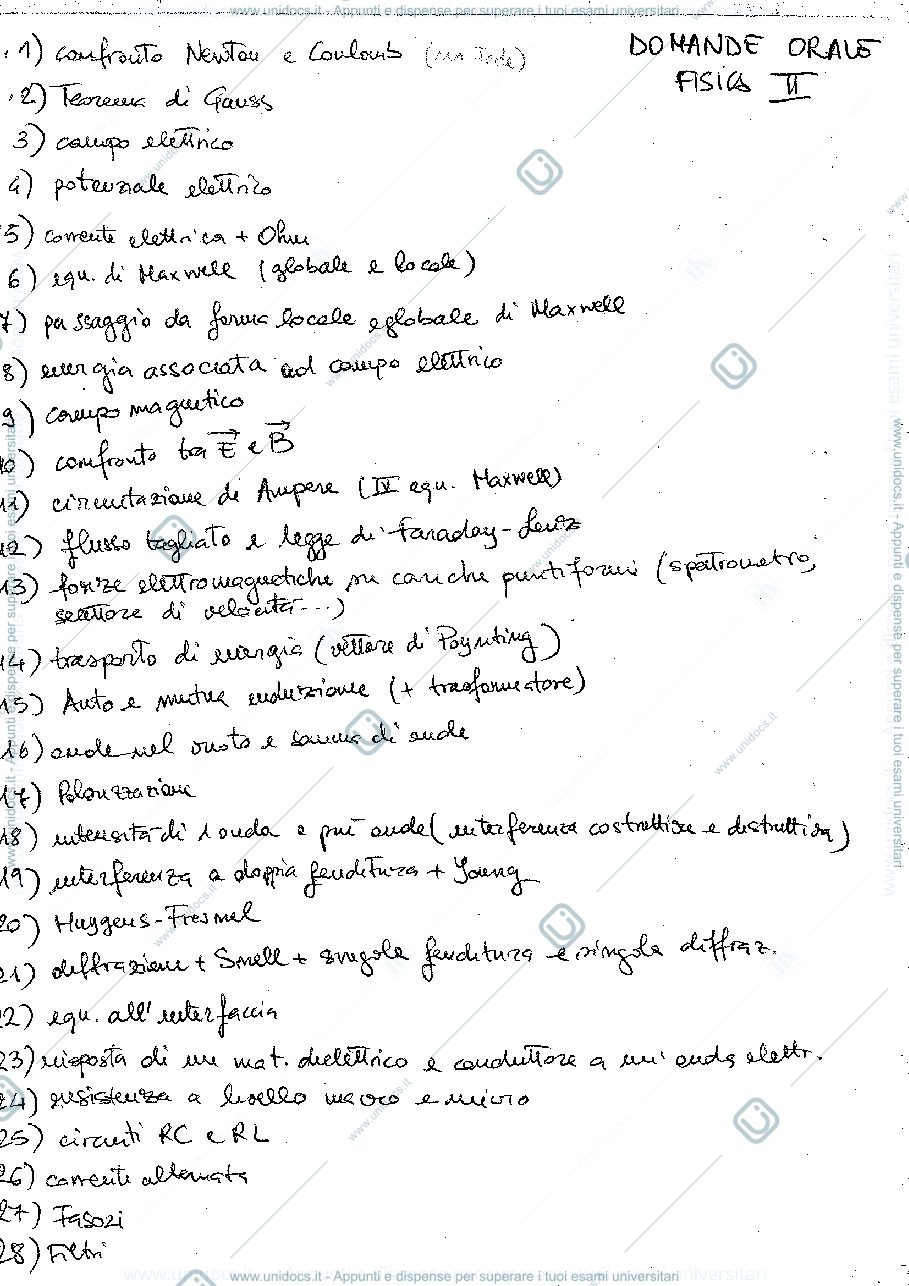 www.unidocs.it - Appunti e dispense per superare i tuoi esami universitari
DOMANDE ORALE
FISICA II
1) confronto Newton e Coulomb
2) Teorema di Gauss
3) campo elettrico
4) potenziale elettrico
5) corrente elettrica + Ohm
6) equ. di Maxwell (globale e locale)
7) passaggio da forma locale e globale di Maxwell
8) energia associata ad campo elettrico
9) campo magnetico
10) confronto tra E e B
11) circuitazione di Ampere (IV equ. Maxwell)
12) flusso tagliato e legge di Faraday-Lenz
13) forze elettromagnetiche su cariche puntiformi (spettrometro,
selettore di velocità...)
14) trasporto di energia (vettore di Poynting)
15) Auto e mutua induzione (+ trasformatore)
16) onde nel vuoto e somma di onde
17) Polarizzazione
18) intensità di 1 onda e più onde (interferenza costruttiva e distruttiva)
19) interferenza a doppia fenditura + Young
20) Huygens-Fresnel
21) diffrazione + Snell + singola fenditura e singola diffraz.
22) equ. all'interfaccia
23) risposta di un mat. dielettrico e conduttore a un'onda elettr.
24) resistenza a livello macro e micro
25) circuiti RC e RL
26) corrente alternata
27) Fasori
28) Filtri
www.unidocs.it - Appunti e dispense per superare i tuoi esami universitari